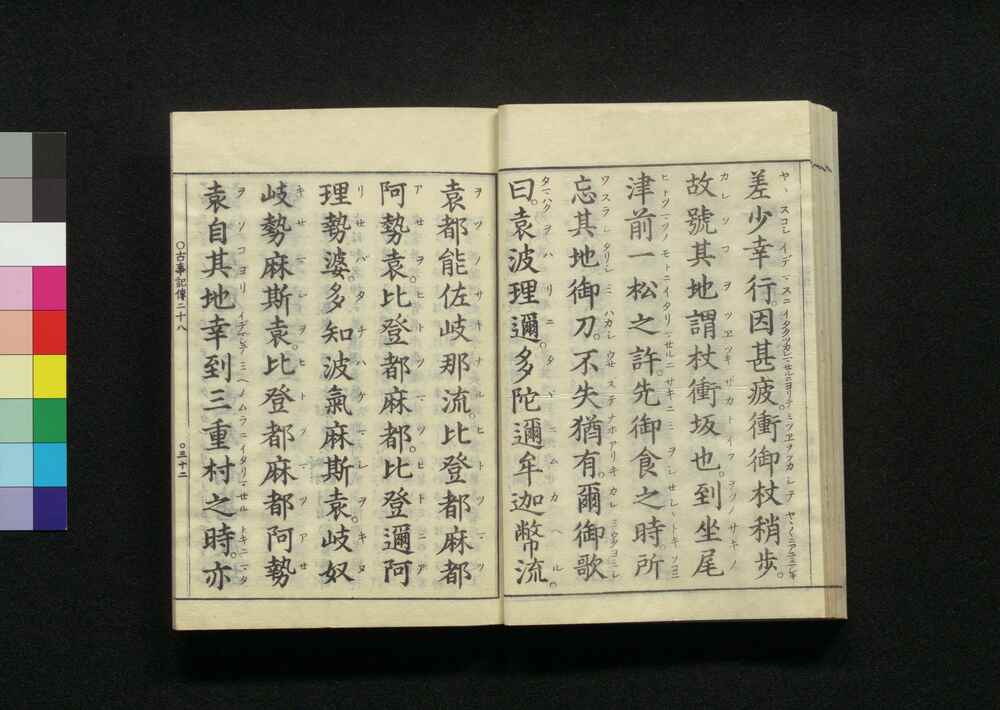 差少幸行。因甚疲。衝御杖稍歩。
故號其地謂杖衝坂也。到坐尾
津前一松之許。先御食之時。所
忘其地御刀。不失猶有。爾御歌
曰。袁波理邇。多陀邇牟迦幣流。
袁都能佐岐那流。比登都麻都
阿勢袁。比登都麻都。比登邇阿
理勢婆多知波氣麻斯袁。岐奴
岐勢麻斯袁。比登都麻都阿勢
袁自其地幸到三重村之時。亦
○古事記傳二十八
○三十二